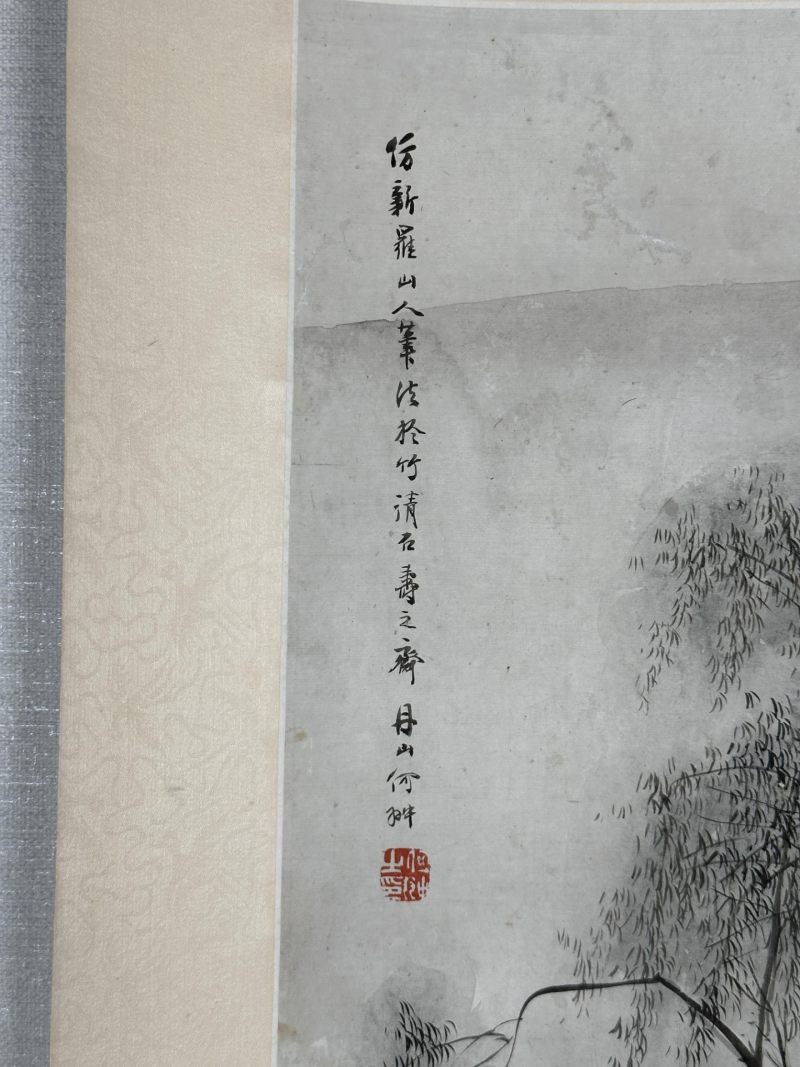 仿新羅山人筆法於竹清石壽之齋 丹山何翀
何翀之印